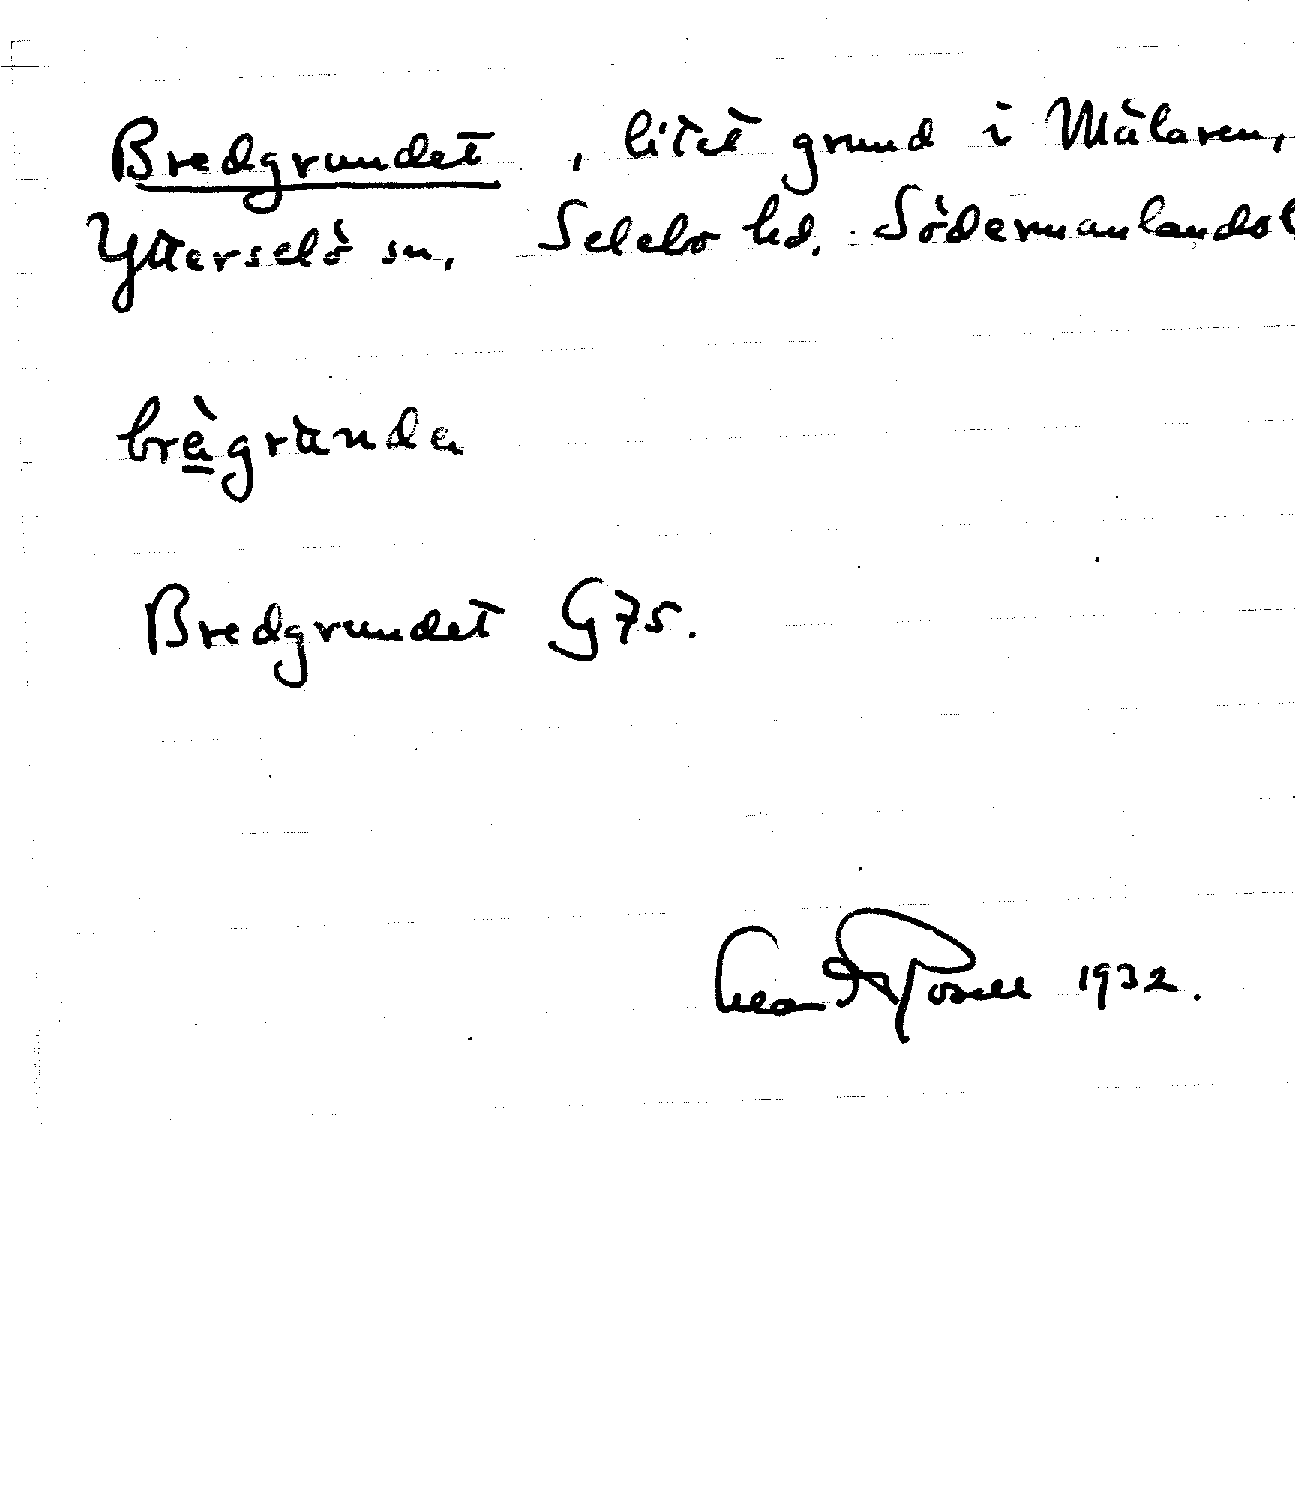 Bredgrundet, litet grund i Mälaren,
Ytterselö sn. Selebo hd. Södermanlands l
brè̱grùnda
Bredgrundet G75.
1932.